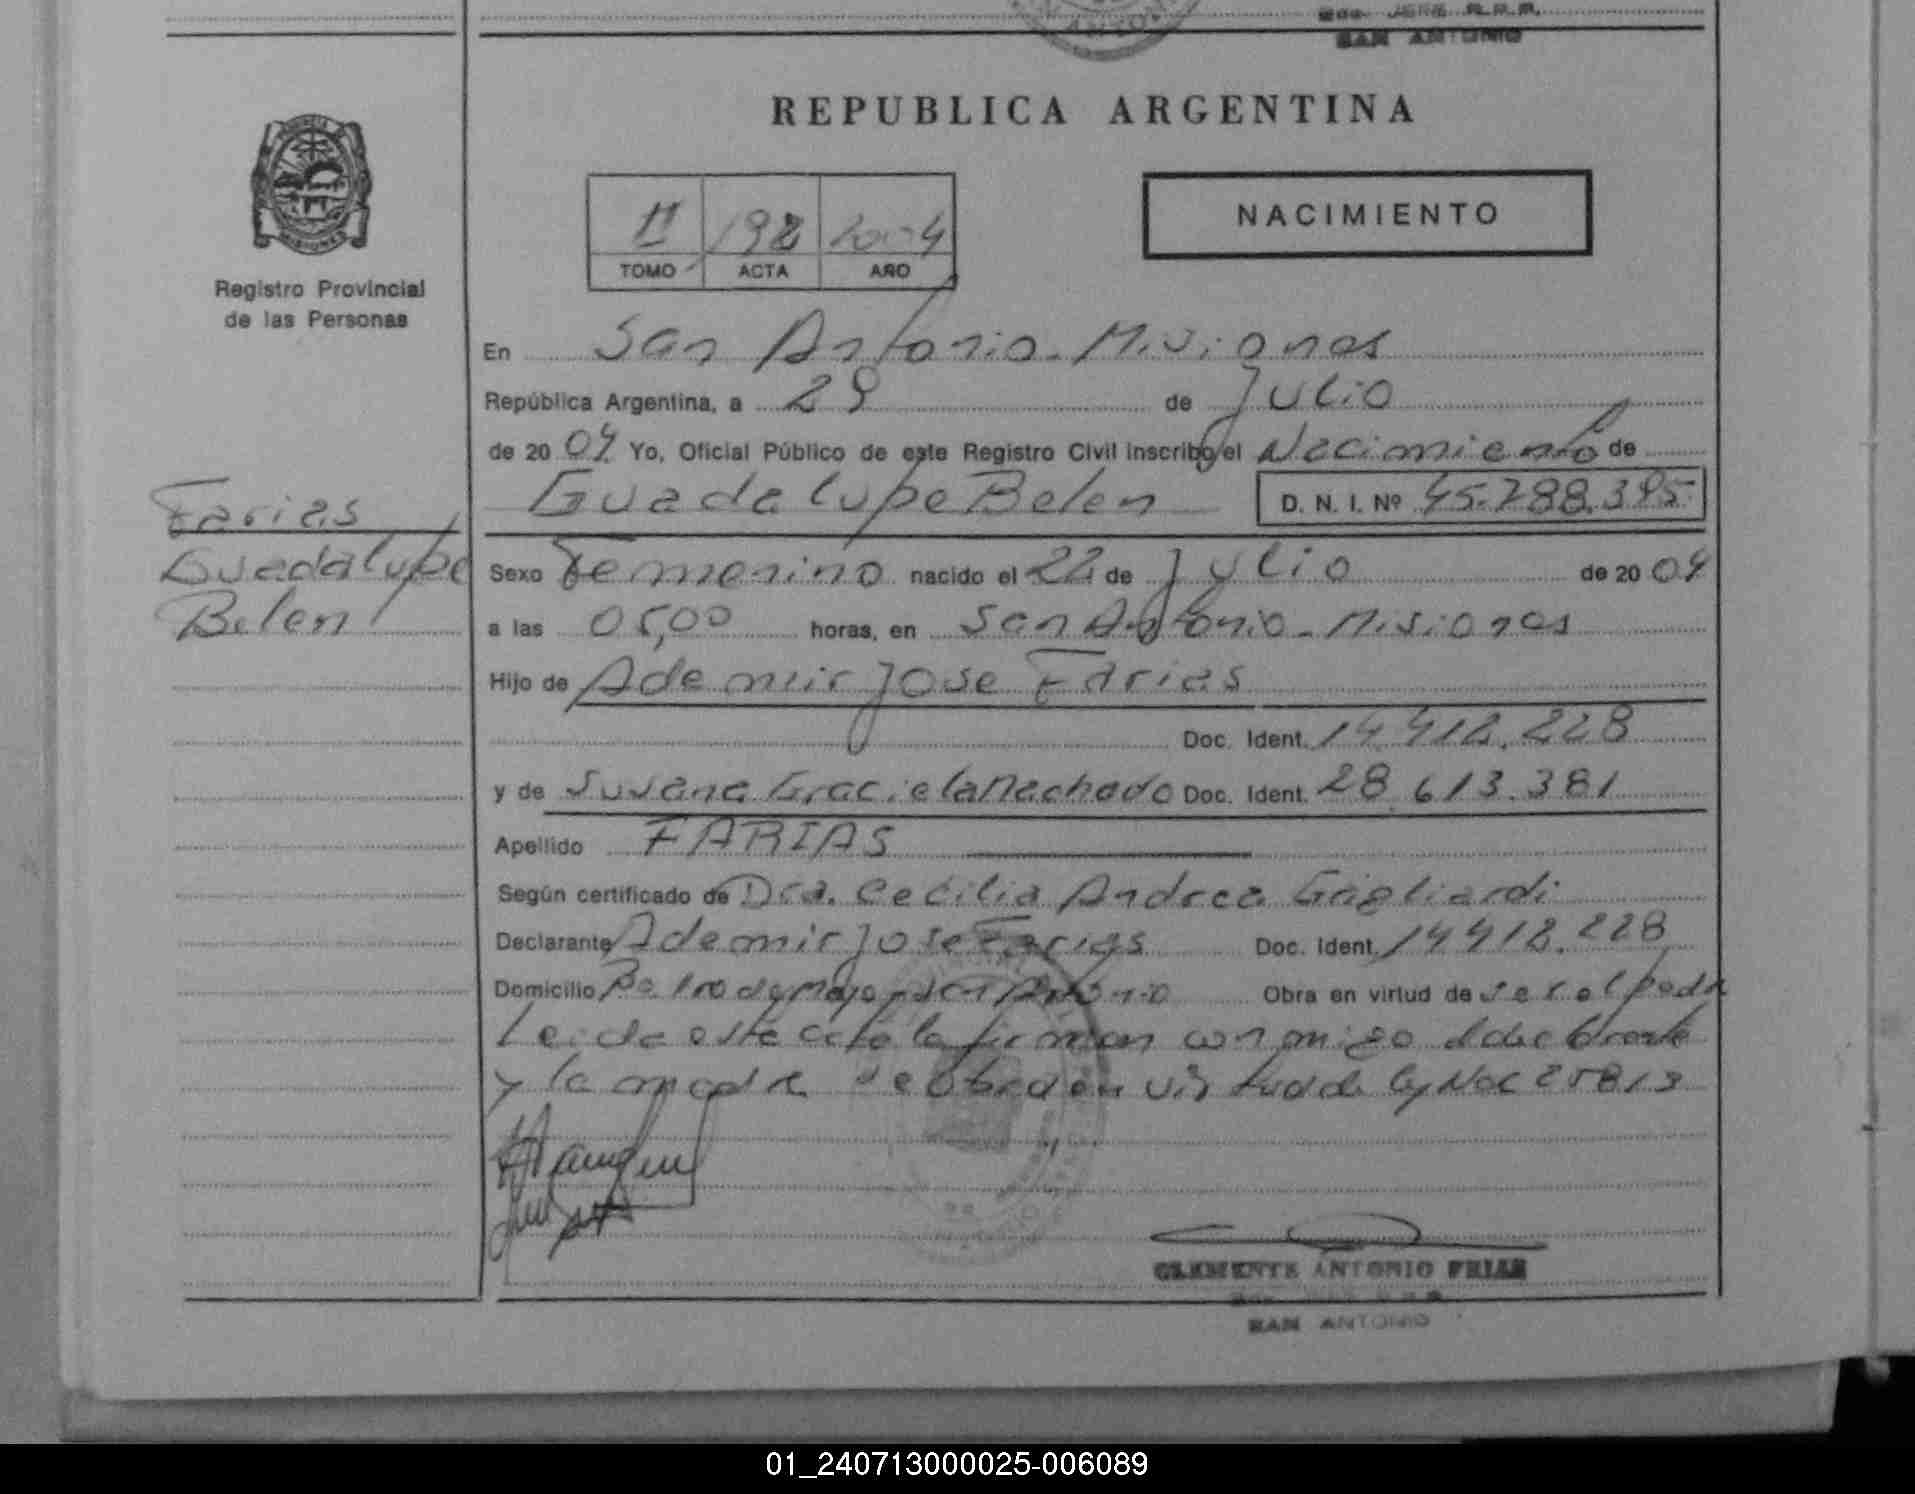 SAN ANTONIO
REPUBLICA ARGENTINA
PROVINCIA DE
MISIONES
II 198 2004
TOMO ACTA AÑO
NACIMIENTO
Registro Provincial
de las Personas
En San Antonio - Misiones
República Argentina, a 29 de Julio
de 2004 Yo, Oficial Público de este Registro Civil inscribo el Nacimiento de
Guadalupe Belen D. N. I. Nº 45.288.395
Farias
Guadalupe
Belen
Sexo Femenino nacido el 22 de Julio de 2004
a las 05,00 horas, en San Antonio - Misiones
Hijo de Ademir Jose Farias
Doc. Ident. 14.412.228
y de Susana Graciela Machado Doc. Ident. 28.613.381
Apellido FARIAS
Según certificado de Dra. Cecilia Andrea Gagliardi
Declarante Ademir Jose Farias Doc. Ident. 14.412.228
Domicilio Bo 1ro de Mayo - San Antonio Obra en virtud de ser el padre
Leida este acta la firman conmigo el declarante
y la madre se obra en virtud de ley Nac 25813
CLEMENTE ANTONIO FRIAS
SAN ANTONIO
01_240713000025-006089